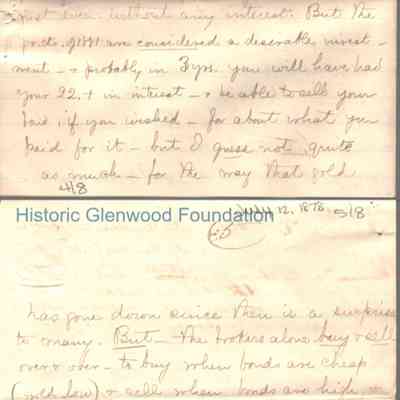 just even. without any interest. But the
pr cts. of 1881 are considered a desirable invest-
ment - & probably in 3 yrs. you will have had
your 22. + in interest - & be able to sell your
bond, if you wished - for about what you
paid for it - but I guess not quite
as much - for the way that gold
4/8
Historic Glenwood Foundation
12, 1878, 5/8
has gone down since then is a surprise
to many. But - the brokers alone buy & sell
over & over - to buy when bonds are cheap
(gold low) & sell when bonds are high